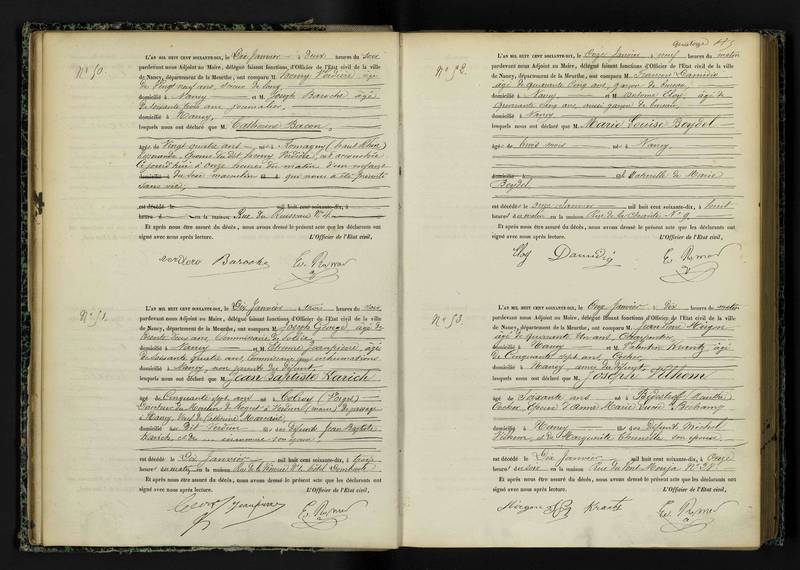 N° 50.
L'AN MIL HUIT CENT SOIXANTE-DIX, le Dix Janvier à deux heures du soir
pardevant nous Adjoint au Maire, délégué faisant fonctions d'Officier de l'Etat civil de la ville
de Nancy, département de la Meurthe, ont comparu M. Verdière âgé
de Vingt neuf ans
domicilié à Nancy et M. Joseph Baroche âgé
de soixante trois ans journalier,
domicilié à Nancy,
lesquels nous ont déclaré que M. Catherine Bacon,
âgée de Vingt quatre ans née à Romagny (haut Rhin)
Epouse du dit Verdière, est accouchée
Cejourd'hui à onze heures du matin d'un enfant
domicilié du sexe masculin qui nous a été présenté
sans vie,
est décédé le mil huit cent soixante-dix, à
heures d en la maison Rue du Ruisseau N° 4.
Et après nous être assuré du décès, nous avons dressé le présent acte que les déclarants ont
signé avec nous après lecture. L'Officier de l'Etat civil,
Baroche
N° 51.
L'AN MIL HUIT CENT SOIXANTE-DIX, le Dix Janvier à trois heures du soir
pardevant nous Adjoint au Maire, délégué faisant fonctions d'Officier de l'Etat civil de la ville
de Nancy, département de la Meurthe, ont comparu M. Joseph George âgé de
trente deux ans Commissaire de Police
domicilié à Nancy et M. Etienne Jeanpierre, âgé
de soixante quatre ans, Commissaire aux inhumations
domicilié à Nancy, non parents du défunt
lesquels nous ont déclaré que M. Jean Baptiste Karich
âgé de Cinquante sept ans né à Colroy (Vosges)
à Verdun (meuse) de passage
à Nancy, Veuf de Catherine
domicilié au dit Verdun fils des défunts Jean Baptiste
Karich et de
est décédé le Dix Janvier mil huit cent soixante-dix, à trois
heures du matin en la maison Rue de la
Et après nous être assuré du décès, nous avons dressé le présent acte que les déclarants ont
signé avec nous après lecture. L'Officier de l'Etat civil,
George Jeanpierre
Quatorze
N° 52.
L'AN MIL HUIT CENT SOIXANTE-DIX, le Onze Janvier à neuf heures du matin
pardevant nous Adjoint au Maire, délégué faisant fonctions d'Officier de l'Etat civil de la ville
de Nancy, département de la Meurthe, ont comparu M. François
âgé de quarante cinq ans, garçon de bureau,
domicilié à Nancy et M. Cloy, âgé de
quarante cinq ans, aussi garçon de bureau,
domicilié à Nancy
lesquels nous ont déclaré que M. Marie Louise Beydel
âgée de trois mois née à Nancy
domicilié à fille naturelle de Marie
Beydel
est décédée le onze Janvier mil huit cent soixante-dix, à huit
heures du matin en la maison Rue de la Charité N° 9,
Et après nous être assuré du décès, nous avons dressé le présent acte que les déclarants ont
signé avec nous après lecture. L'Officier de l'Etat civil,
Cloy
N° 53.
L'AN MIL HUIT CENT SOIXANTE-DIX, le Onze Janvier à dix heures du matin
pardevant nous Adjoint au Maire, délégué faisant fonctions d'Officier de l'Etat civil de la ville
de Nancy, département de la Meurthe, ont comparu M. Jean Pierre
âgé de quarante un ans, Charpentier
domicilié à Nancy et M. Valentin Krantz âgé
de Cinquante sept ans, Cocher,
domicilié à Nancy, amis du défunt
lesquels nous ont déclaré que M. Joseph Vilhem
âgé de Soixante ans né à
Cocher, Epoux d'Anne Marie Lucie Bochamp
domicilié à Nancy fils des défunts Michel
Vilhem et de Marguerite son épouse
est décédé le Dix Janvier mil huit cent soixante-dix, à onze
heures du soir en la maison Rue du Pont Mouja N° 28
Et après nous être assuré du décès, nous avons dressé le présent acte que les déclarants ont
signé avec nous après lecture. L'Officier de l'Etat civil,
Krantz